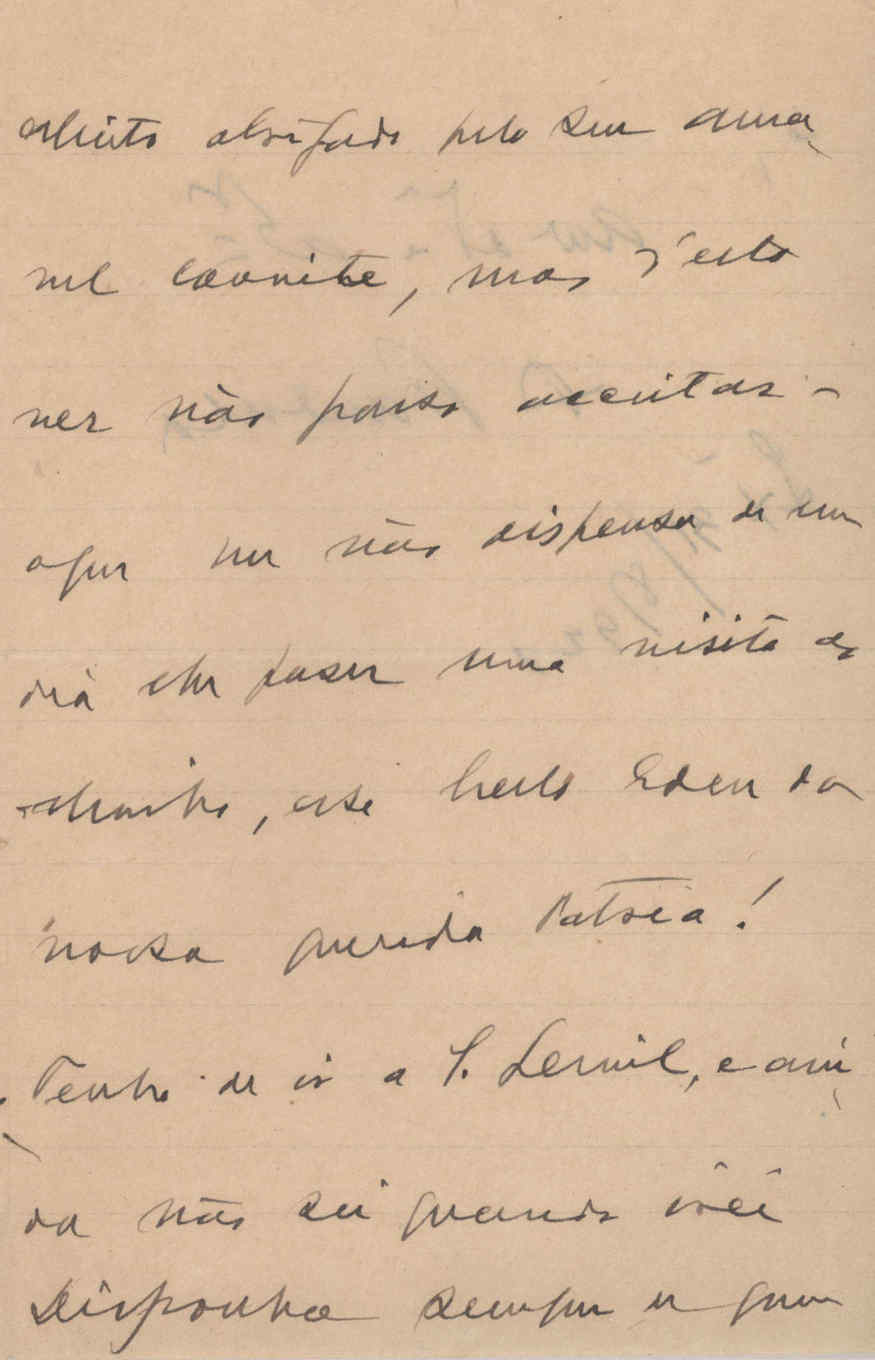 Muito obrigado pelo seu ama
vel convite, mas d'esta
vez não posso acceitar -
o que me não dispensa de um
dia ahi fazer uma visita ao
Minho, esse bello Eden da
nossa querida Patria!
Tenho de ir a S. , e ain
da não sei quando irei
Disponha sempre de quem